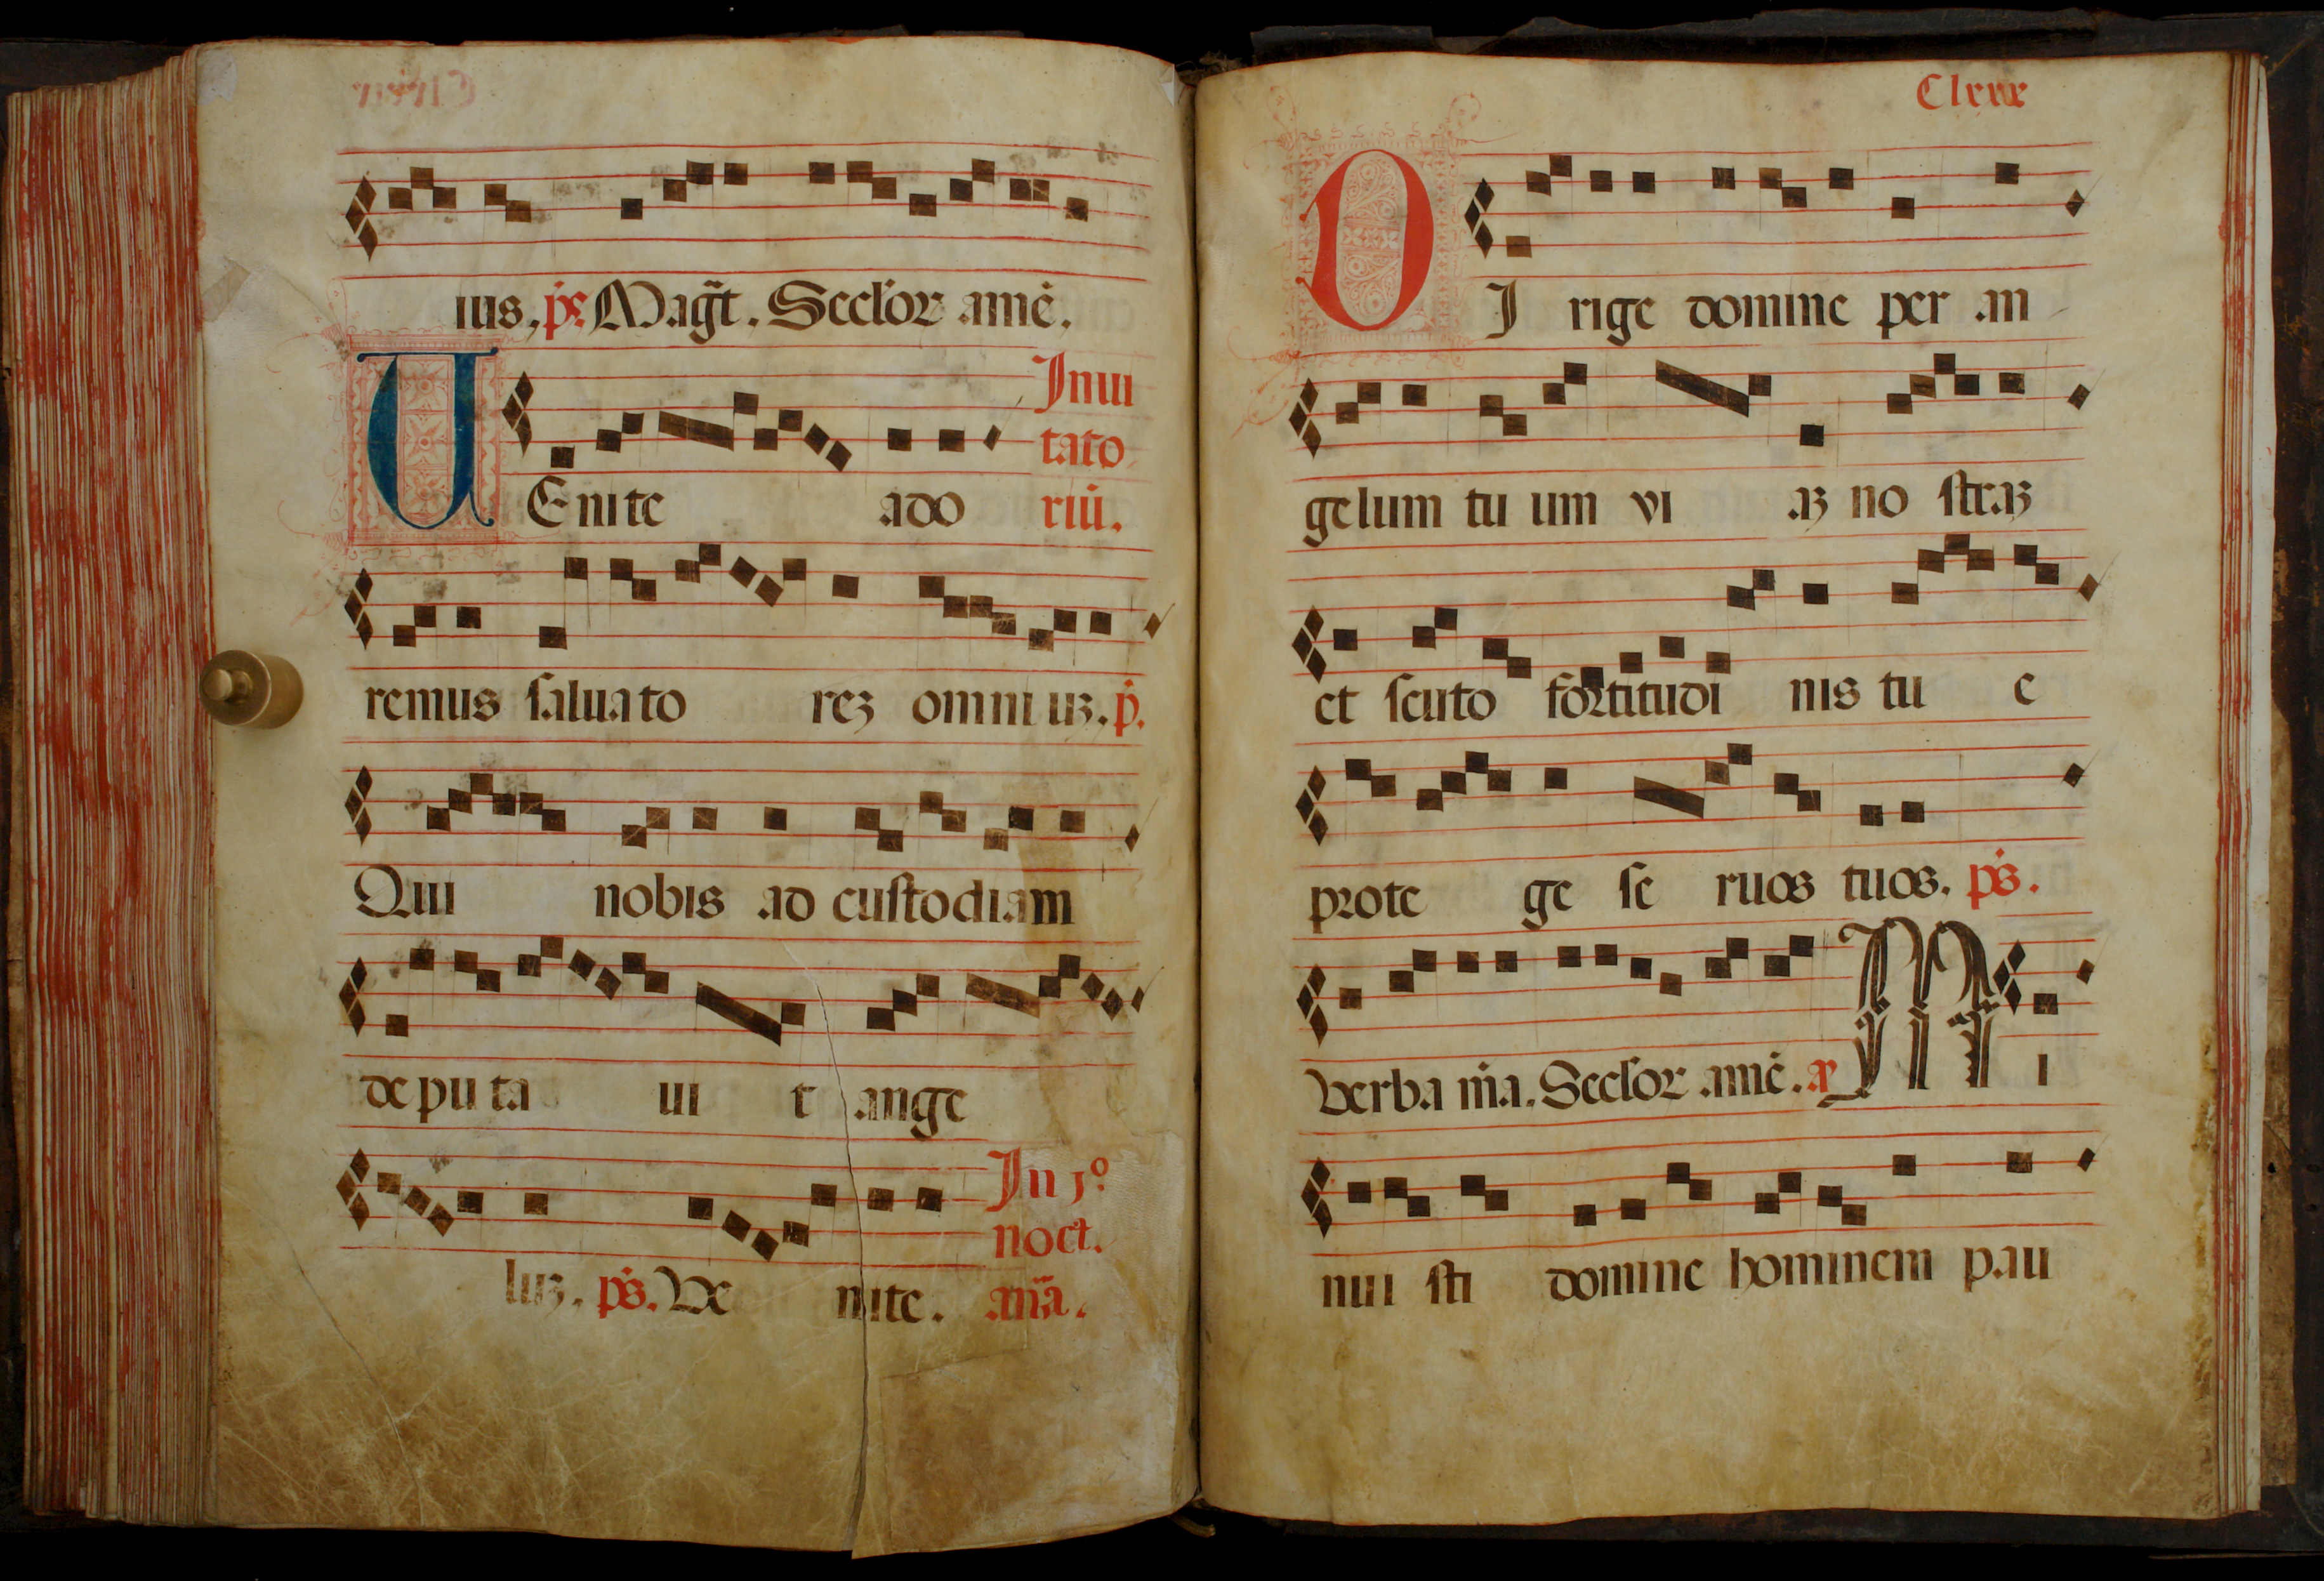 ius. ps. Mag̃t. Seclor amē.
UEnite ado
Inui
tato
riū.
remus saluato rez omni uz. p̄.
Qui nobis ad custodiam
deputa ui t ange
luz. ps. Ve nite.
In jº
noct.
an̄a.
DI rige domine per an
gelum tu um vi az no straz
et scuto fortitudi nis tu e
prote ge se ruos tuos. ps.
Verba m̄a. Seclor amē. a᷒ M i
nui sti domine hominem pau